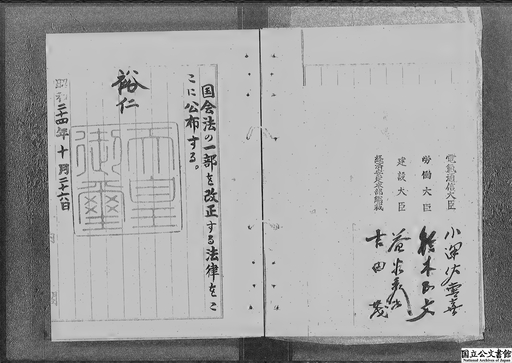 電気通信大臣 小澤佐重喜
労働大臣 鈴木正文
建設大臣 益谷秀次
経済安定本部総裁 吉田茂
国会法の一部を改正する法律をこ
こに公布する。
裕仁
天皇
御璽
昭和二十四年十月二十六日
国立公文書館
National Archives of Japan